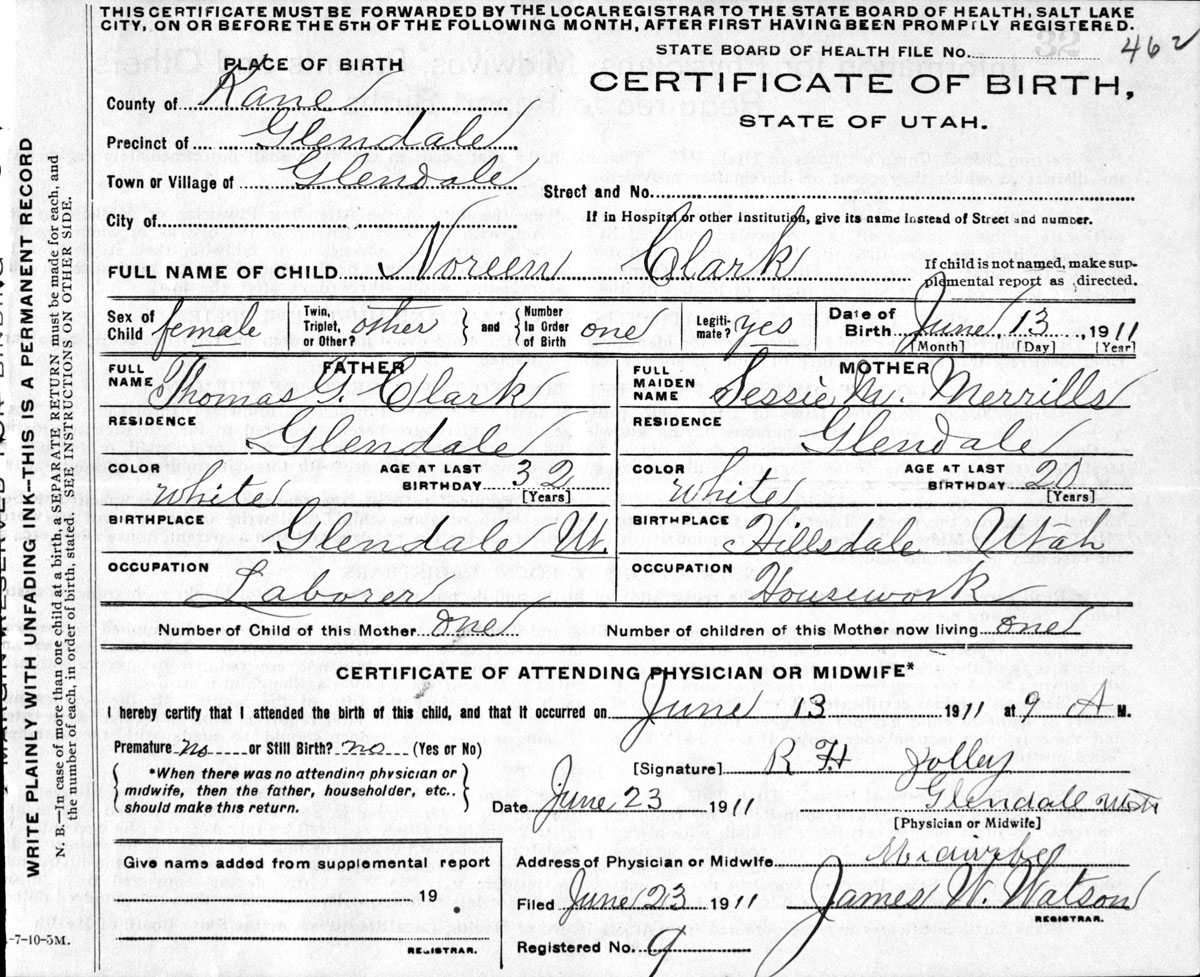 THIS CERTIFICATE MUST BE FORWARDED BY THE LOCAL REGISTRAR TO THE STATE BOARD OF HEALTH, SALT LAKE
CITY, ON OR BEFORE THE 5TH OF THE FOLLOWING MONTH, AFTER FIRST HAVING BEEN PROMPTLY REGISTERED.
STATE BOARD OF HEALTH FILE No. 462
PLACE OF BIRTH
CERTIFICATE OF BIRTH,
STATE OF UTAH.
County of Kane
Precinct of Glendale
Town or Village of Glendale
Street and No.
City of
If in Hospital or other institution, give its name instead of Street and number.
FULL NAME OF CHILD Noreen Clark
If child is not named, make supplemental report as directed.
Sex of Child female Twin, Triplet, or Other? other and Number In Order of Birth one Legitimate? yes Date of Birth June 13 1911
[Month] [Day] [Year]
FATHER MOTHER
FULL NAME Thomas G. Clark FULL MAIDEN NAME Sessie M. Merrills
RESIDENCE Glendale RESIDENCE Glendale
COLOR White AGE AT LAST BIRTHDAY 32 [Years] COLOR White AGE AT LAST BIRTHDAY 20 [Years]
BIRTHPLACE Glendale Ut. BIRTHPLACE Hillsdale Utah
OCCUPATION Laborer OCCUPATION Housework
Number of Child of this Mother one Number of children of this Mother now living one
CERTIFICATE OF ATTENDING PHYSICIAN OR MIDWIFE*
I hereby certify that I attended the birth of this child, and that it occurred on June 13 1911 at 9 A M.
Premature no or Still Birth? no (Yes or No)
[Signature] R H Jolley
*When there was no attending physician or midwife, then the father, householder, etc., should make this return.
Date June 23 1911 Glendale
[Physician or Midwife]
Give name added from supplemental report
19 .
REGISTRAR.
Address of Physician or Midwife Midwife
Filed June 23 1911 James W. Watson
REGISTRAR.
Registered No. 9
WRITE PLAINLY WITH UNFADING INK--THIS IS A PERMANENT RECORD
N. B.--In case of more than one child at a birth, SEPARATE RETURN must be made for each, and
the number of each, in order of birth, stated. SEE INSTRUCTIONS ON OTHER SIDE.
-7-10-5M.